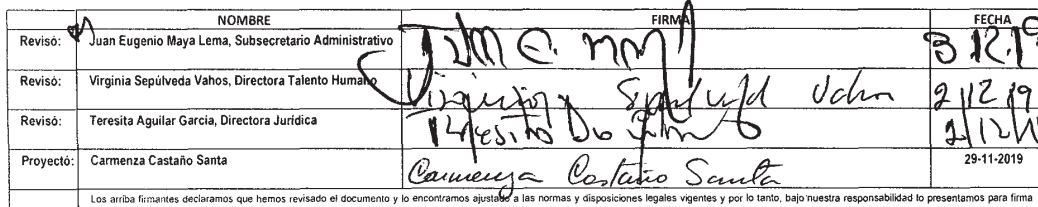 NOMBRE FIRMA FECHA
Revisó: Juan Eugenio Maya Lema, Subsecretario Administrativo 3.12.19
Revisó: Virginia Sepúlveda Vahos, Directora Talento Humano Virginia Sepulveda Vahos 2/12/19
Revisó: Teresita Aguilar García, Directora Jurídica Teresita
Proyectó: Carmenza Castaño Santa Carmenza Castaño Santa 29-11-2019
Los arriba firmantes declaramos que hemos revisado el documento y lo encontramos ajustado a las normas y disposiciones legales vigentes y por lo tanto, bajo nuestra responsabilidad lo presentamos para firma